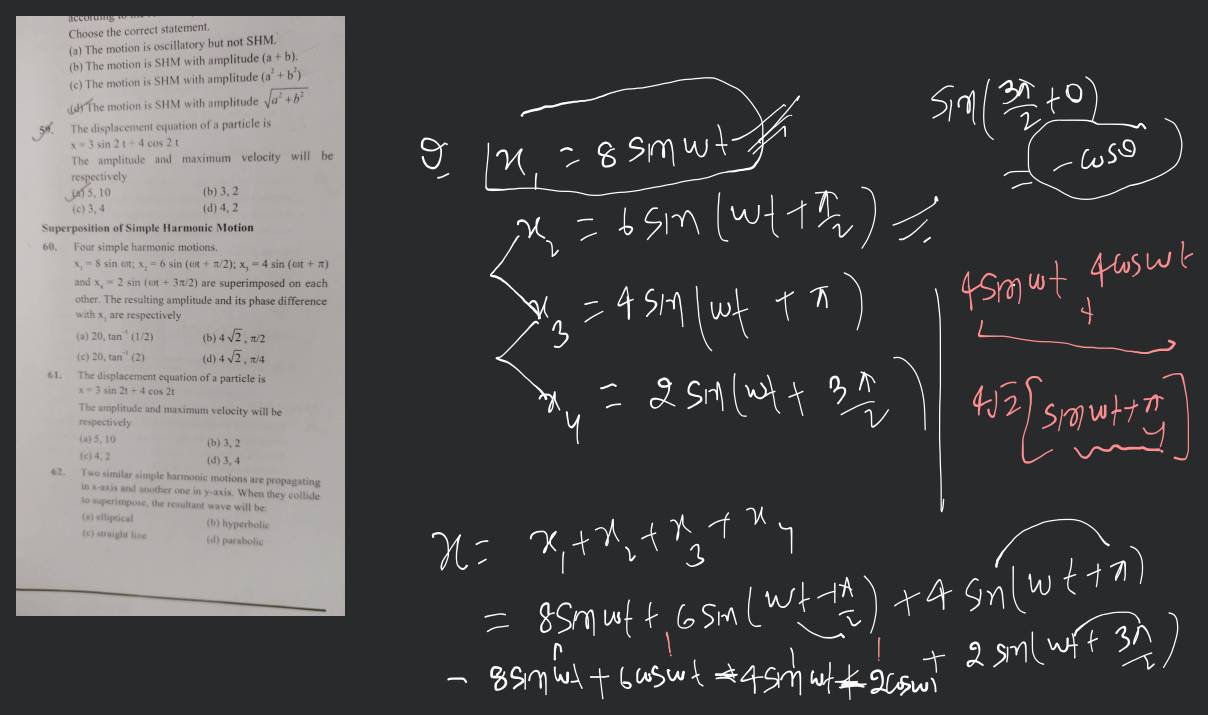 according to the
Choose the correct statement.
(a) The motion is oscillatory but not SHM.
(b) The motion is SHM with amplitude (a + b).
(c) The motion is SHM with amplitude (a² + b²)
(d) The motion is SHM with amplitude √a² + b²
59. The displacement equation of a particle is
x = 3 sin 2 t + 4 cos 2 t
The amplitude and maximum velocity will be
respectively
(a) 5, 10 (b) 3, 2
(c) 3, 4 (d) 4, 2
Superposition of Simple Harmonic Motion
60. Four simple harmonic motions.
x₁ = 8 sin ωt; x₂ = 6 sin (ωt + π/2); x₃ = 4 sin (ωt + π)
and x₄ = 2 sin (ωt + 3π/2) are superimposed on each
other. The resulting amplitude and its phase difference
with x₁ are respectively
(a) 20, tan⁻¹ (1/2) (b) 4√2, π/2
(c) 20, tan⁻¹ (2) (d) 4√2, π/4
61. The displacement equation of a particle is
x = 3 sin 2t + 4 cos 2t
The amplitude and maximum velocity will be
respectively
(a) 5, 10 (b) 3, 2
(c) 4, 2 (d) 3, 4
62. Two similar simple harmonic motions are propagating
in x-axis and another one in y-axis. When they collide
to superimpose, the resultant wave will be:
(a) elliptical (b) hyperbolic
(c) straight line (d) parabolic
x₁ = 8 sin wt
x₂ = 6 sin (wt + π/2)
x₃ = 4 sin (wt + π)
x₄ = 2 sin (wt + 3π/2)
sin (3π/2 + θ)
= - cosθ
4 sin wt + 4 cos wt
4√2 [sin wt + π/4]
x = x₁ + x₂ + x₃ + x₄
= 8 sin wt + 6 sin (wt + π/2) + 4 sin (wt + π)
+ 2 sin (wt + 3π/2)
- 8 sin wt + 6 cos wt - 4 sin wt - 2 cos wt